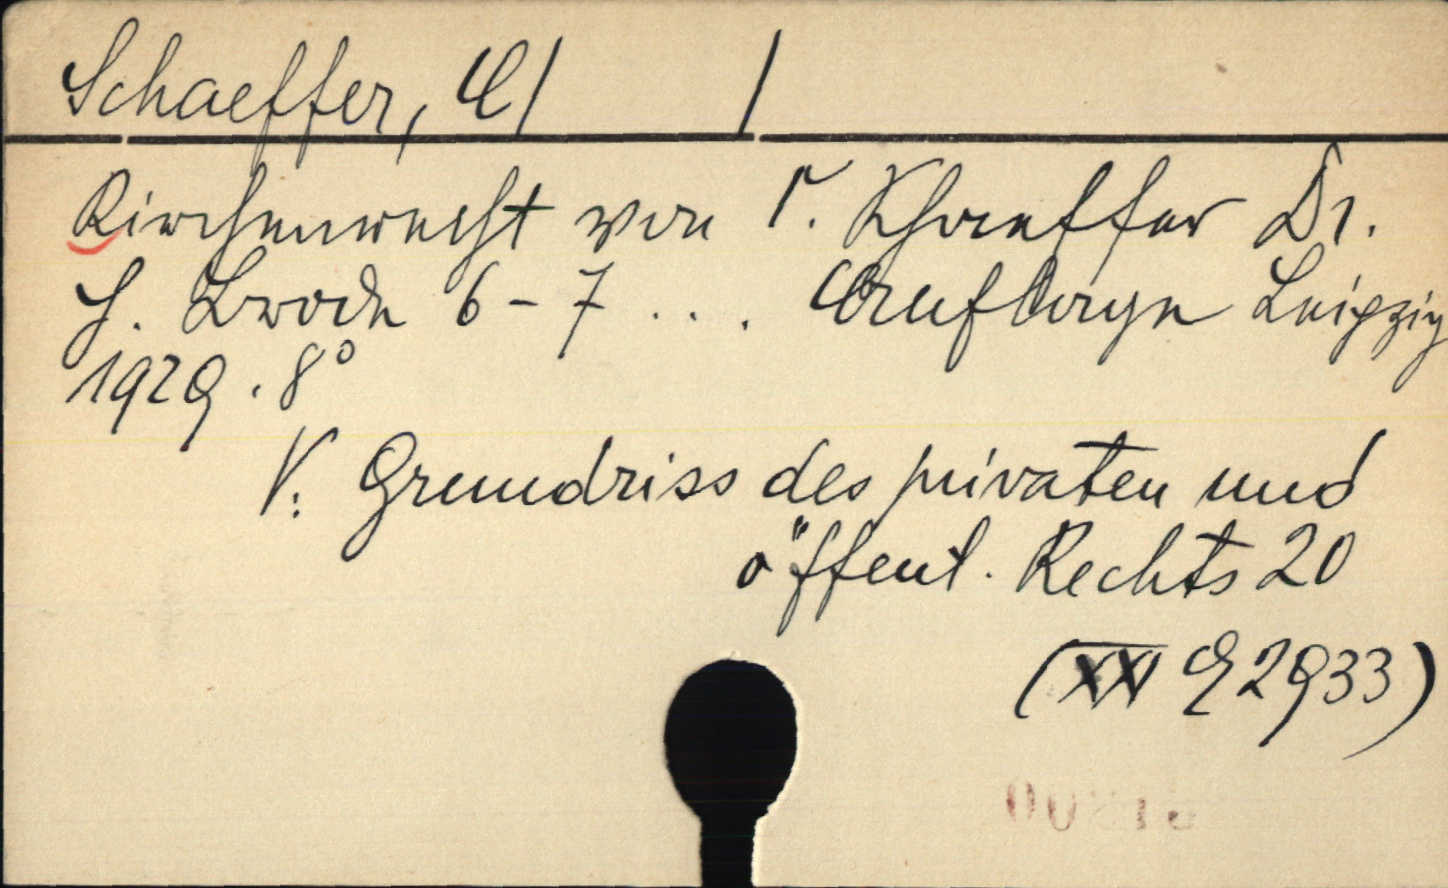 Schaeffer, C/ /
Kirchenrecht von C. Schaeffer Dr.
H. Brode 6 - 7 ... Auflage Leipzig
1929. 8°
V: Grundriss des privaten und
öffentl. Rechts 20
(XXI 2933)